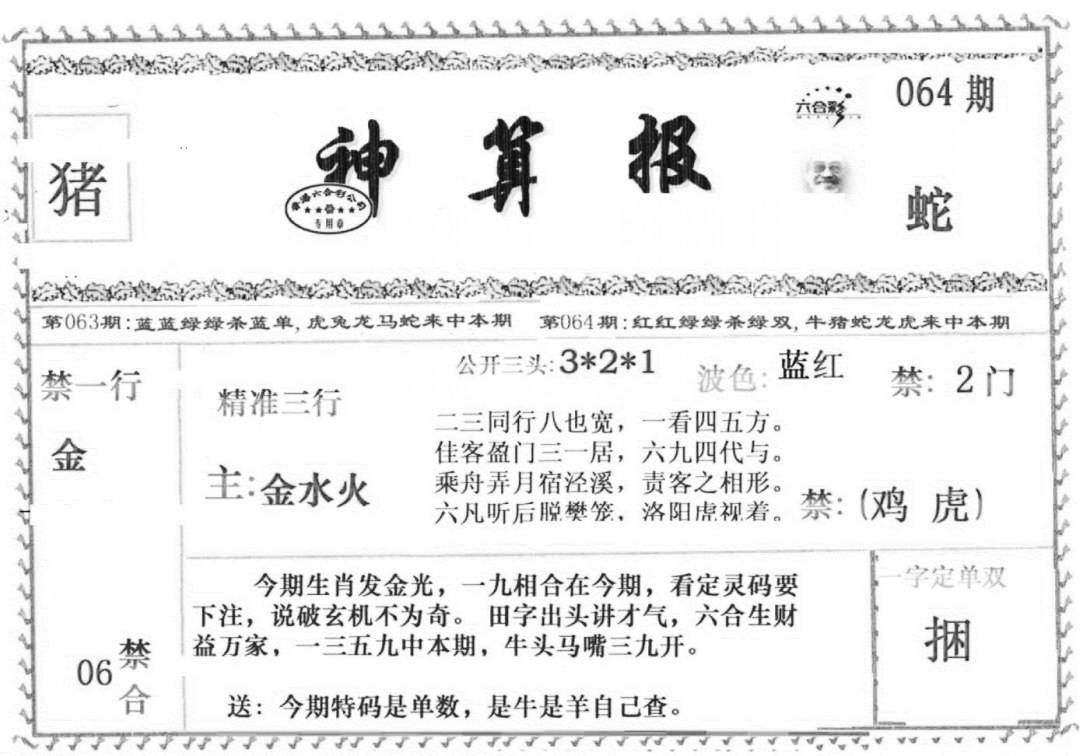 064期
六合彩
猪
神算报
香港六合彩公司
专用章
蛇
第063期:蓝蓝绿绿杀蓝单,虎兔龙马蛇来中本期 第064期:红红绿绿杀绿双,牛猪蛇龙虎来中本期
禁一行
金
精准三行
主:金水火
公开三头:3*2*1
波色:蓝红
禁:2门
二三同行八也宽，一看四五方。
佳客盈门三一居，六九四代与。
乘舟弄月宿泾溪，责客之相形。
六凡听后脱樊笼，洛阳虎视着。
禁:(鸡 虎)
06禁合
今期生肖发金光，一九相合在今期，看定灵码要
下注，说破玄机不为奇。田字出头讲才气，六合生财
益万家，一三五九中本期，牛头马嘴三九开。
送：今期特码是单数，是牛是羊自己查。
一字定单双
捆